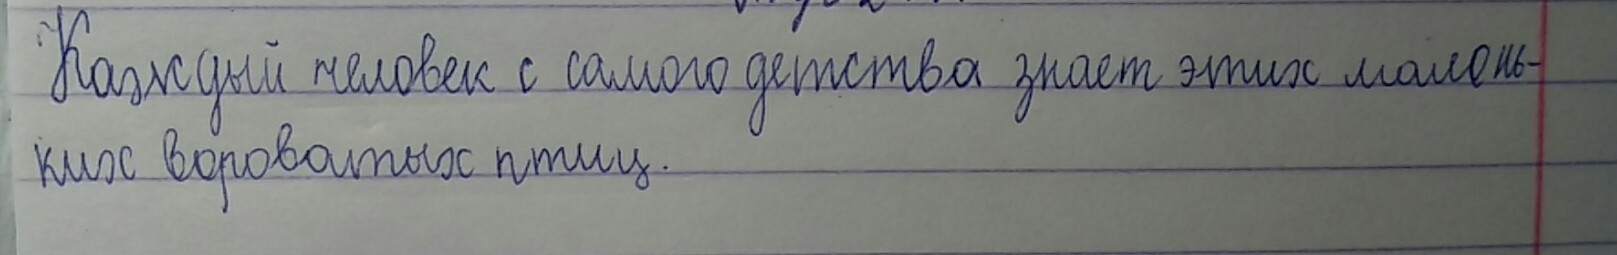 Каждый человек с самого детства знает этих малень-
ких вороватых птиц.